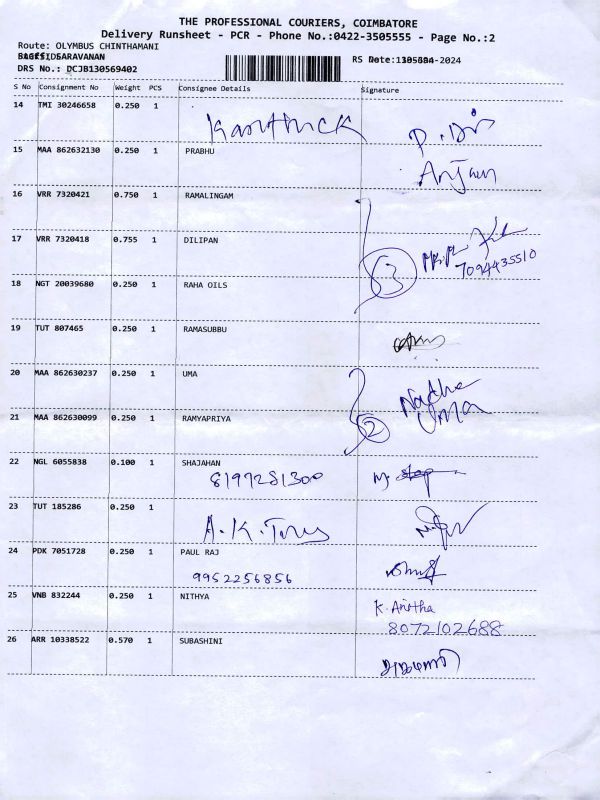 THE PROFESSIONAL COURIERS, COIMBATORE
Delivery Runsheet - PCR - Phone No.:0422-3505555 - Page No.:2
Route: OLYMBUS CHINTHAMANI
SARAVANAN
RS Date: -2024
DRS No.: DCJB130569402
S No Consignment No Weight PCS Consignee Details Signature
14 TMI 30246658 0.250 1
Karthick
15 MAA 862632130 0.250 1 PRABHU
Anjan
16 VRR 7320421 0.750 1 RAMALINGAM
17 VRR 7320418 0.755 1 DILIPAN
3
7094435510
18 NGT 20039680 0.250 1 RAHA OILS
19 TUT 807465 0.250 1 RAMASUBBU
20 MAA 862630237 0.250 1 UMA
Uma
21 MAA 862630099 0.250 1 RAMYAPRIYA
2
22 NGL 6055838 0.100 1 SHAJAHAN
8197281300
23 TUT 185286 0.250 1
24 PDK 7051728 0.250 1 PAUL RAJ
9952256856
25 VNB 832244 0.250 1 NITHYA
K. Anitha
8072102688
26 ARR 10338522 0.570 1 SUBASHINI